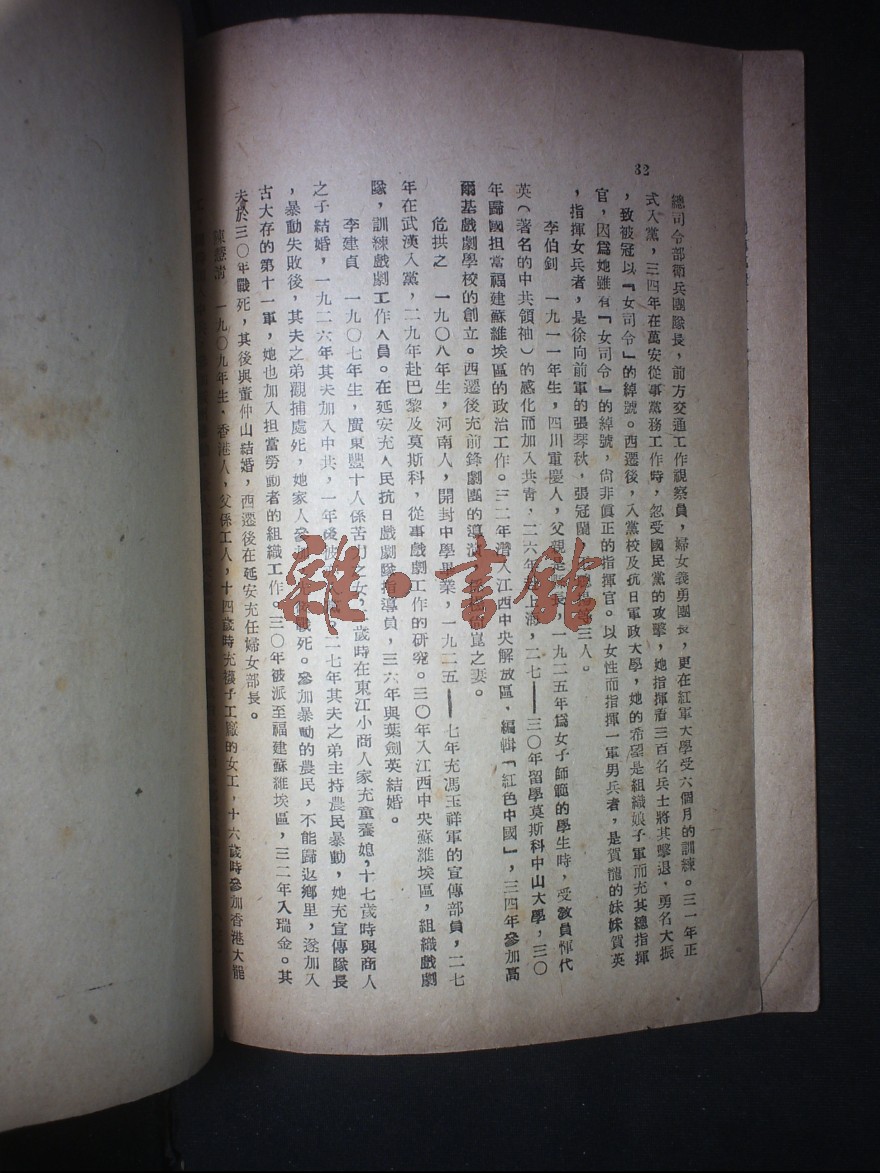 32
總司令部衛兵團隊長，前方交通工作視察員，婦女義勇團長，更在紅軍大學受六個月的訓練。三一年正
式入黨，三四年在萬安從事黨務工作時，忽受國民黨的攻擊，她指揮着三百名兵士將其擊退，勇名大振
，致被冠以『女司令』的綽號。西遷後，入黨校及抗日軍政大學，她的希望是組織娘子軍而充其總指揮
官，因爲她雖有『女司令』的綽號，尙非眞正的指揮官。以女性而指揮一軍男兵者，是賀龍的妹妹賀英
，指揮女兵者，是徐向前軍的張琴秋，張冠蘭 三人。
李伯釗　一九一一年生，四川重慶人，父親是 ，一九二五年爲女子師範的學生時，受敎員惲代
英（著名的中共領袖）的感化而加入共靑，二六年 上海，二七——三〇年留學莫斯科中山大學，三〇
年歸國担當福建蘇維埃區的政治工作。三二年潛入江西中央解放區，編輯「紅色中國」，三四年參加高
爾基戲劇學校的創立。西遷後充前鋒劇團的導演 崑之妻。
危拱之　一九〇八年生，河南人，開封中學畢業，一九二五——七年充馮玉祥軍的宣傳部員，二七
年在武漢入黨，二九年赴巴黎及莫斯科，從事戲劇工作的研究。三〇年入江西中央蘇維埃區，組織戲劇
隊，訓練戲劇工作人員。在延安充人民抗日戲劇隊指導員，三六年與葉劍英結婚。
李建貞　一九〇七年生，廣東豐十人係苦力之女， 歲時在東江小商人家充童養媳，十七歲時與商人
之子結婚，一九二六年其夫加入中共，一年後被 ，二七年其夫之弟主持農民暴動，她充宣傳隊長
，暴動失敗後，其夫之弟觀捕處死，她家人參加 戰死。參加暴動的農民，不能歸返鄕里，遂加入
古大存的第十一軍，她也加入担當勞動者的組織工作。三〇年被派至福建蘇維埃區，三二年入瑞金。其
夫於三〇年戰死，其後與董仲山結婚，西遷後在延安充任婦女部長。
陳慧淸　一九〇九年生，香港人，父係工人，十四歲時充襪子工廠的女工，十六歲時參加香港大罷
雜·書館